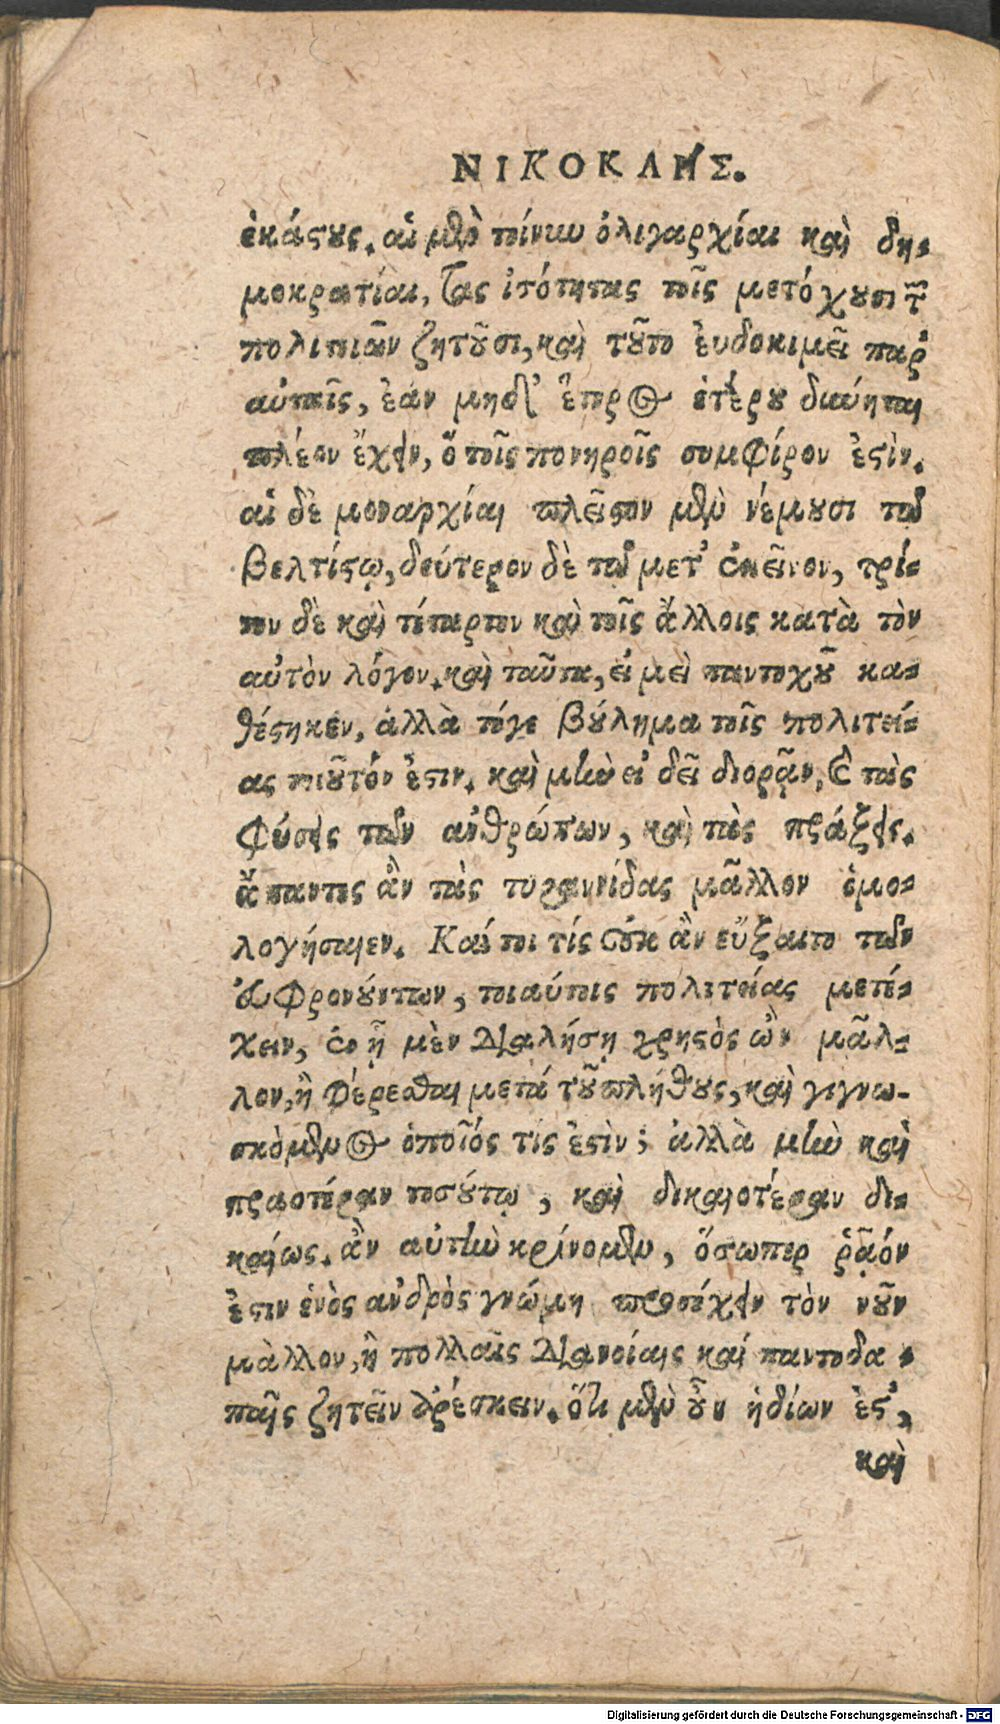 ΝΙΚΟΚΛΗΣ.
ἑκάϛους. αἱ μὲν τοίνυν ὀλιγαρχίαι καὶ δη-
μοκρατίαι, τὰς ἰσότητας τοῖς μετέχουσι τῶν
πολιτειῶν ζητοῦσι, καὶ τοῦτο εὐδοκιμεῖ παρ'
αὐταῖς, ἐὰν μηδ' ἕτερος ἑτέρου δύνηται
πλέον ἔχειν, ὃ τοῖς πονηροῖς συμφέρον ἐϛὶν.
αἱ δὲ μοναρχίαι πλεῖϛον μὲν νέμουσι τῷ
βελτίϛῳ, δεύτερον δὲ τῷ μετ' ἐκεῖνον, τρί-
τον δὲ καὶ τέταρτον καὶ τοῖς ἄλλοις κατὰ τὸν
αὐτὸν λόγον. καὶ ταῦτα, εἰ μὲὶ πανταχοῦ κα-
θέϛηκεν, ἀλλὰ τόγε βούλημα τοῖς πολιτεί-
ας τοιοῦτόν ἐϛιν. καὶ μὲν εἰ δεῖ διορᾷν, καὶ τὰς
φύσεις τῶν ἀνθρώπων, καὶ τὰς πράξεις.
ἅπαντες ἂν τὰς τυραννίδας μᾶλλον ὁμο-
λογήσαιεν. Καίτοι τίς οὐκ ἂν εὔξαιτο τῶν
εὖ φρονούντων, τοιαύτης πολιτείας μετέ-
χειν, ἐν ᾗ μὲν διαλήσῃ χρηϛὸς ὢν μᾶλ-
λον, ἢ φέρεσθαι μετά τοῦ πλήθους, καὶ γιγνω-
σκόμενος ὁποῖός τις ἐϛὶν; ἀλλὰ μὴν καὶ
πραοτέραν τοσούτῳ, καὶ δικαιοτέραν δι-
καίως. ἂν αὐτὴν κρίνομεν, ὅσωπερ ῥᾷόν
ἐϛιν ἑνὸς ἀνδρὸς γνώμῃ προσέχειν τὸν νοῦν
μᾶλλον, ἢ πολλαῖς διανοίαις καί παντοδα-
παῖς ζητεῖν ἀρέσκειν. ὅτι μὲν οὖν ἡδίων ἐϛ',
καὶ
Digitalisierung gefördert durch die Deutsche Forschungsgemeinschaft - DFG